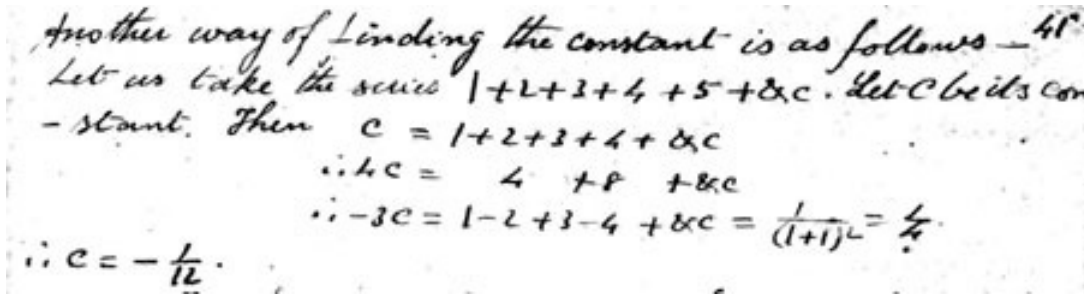 Another way of finding the constant is as follows — 41
Let us take the series 1+2+3+4+5+&c. Let C be its con
-stant. Then C = 1+2+3+4+&c
∴ 4C = 4 +8 +&c
∴ -3C = 1-2+3-4+&c = 1/(1+1)² = 1/4
∴ C = -1/12.